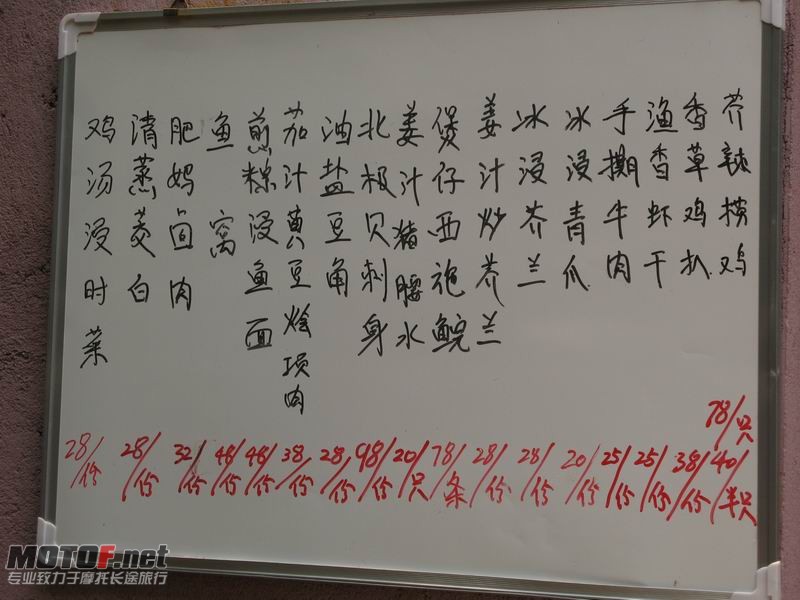 芥辣捞鸡
78/只
40/半只
香草鸡扒
38/份
渔香虾干
25/份
手撕牛肉
25/份
冰浸青瓜
20/份
冰浸芥兰
28/份
姜汁炒芥兰
28/份
煲仔西施鲩
78/条
姜汁猪腰水
20/只
北极贝刺身
98/份
油盐豆角
28/份
茄汁黄豆烩项肉
38/份
煎粽浸鱼面
48/份
鱼窝
48/份
肥妈卤肉
32/份
清蒸茭白
28/份
鸡汤浸时菜
28/份
MOTOF.net
专业致力于摩托长途旅行